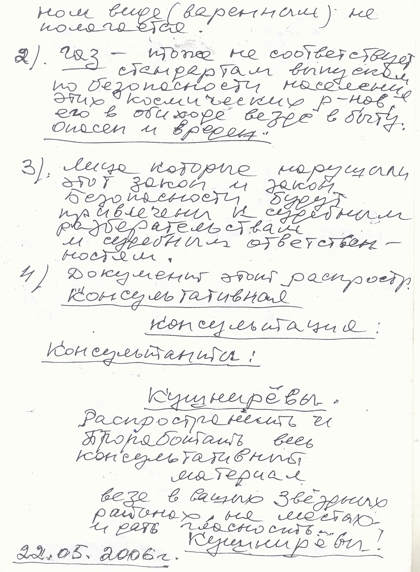 ном виде (варенным) не
полагается.
2). Газ – тоже не соответствует
стандартам выпуском
по безопасности населению
этих космических р-нов, -
его в обиходе везде в быту.
Опасен и вреден.
3). Лица которые нарушили
этот закон и закон
Безопасности будут
привлечены к судебным
разбирательствам
и судебным ответствен-
ностям.
4) Документ этот распростр.
Консультативная
консультация:
Консультанты:
Кушнирёвы.
Распространить и
Проработать весь
консультативный
материал
везе в ваших Звёздных
районах на местах
и дать гласность.
Кушнирёвы!
22.05.2006г.